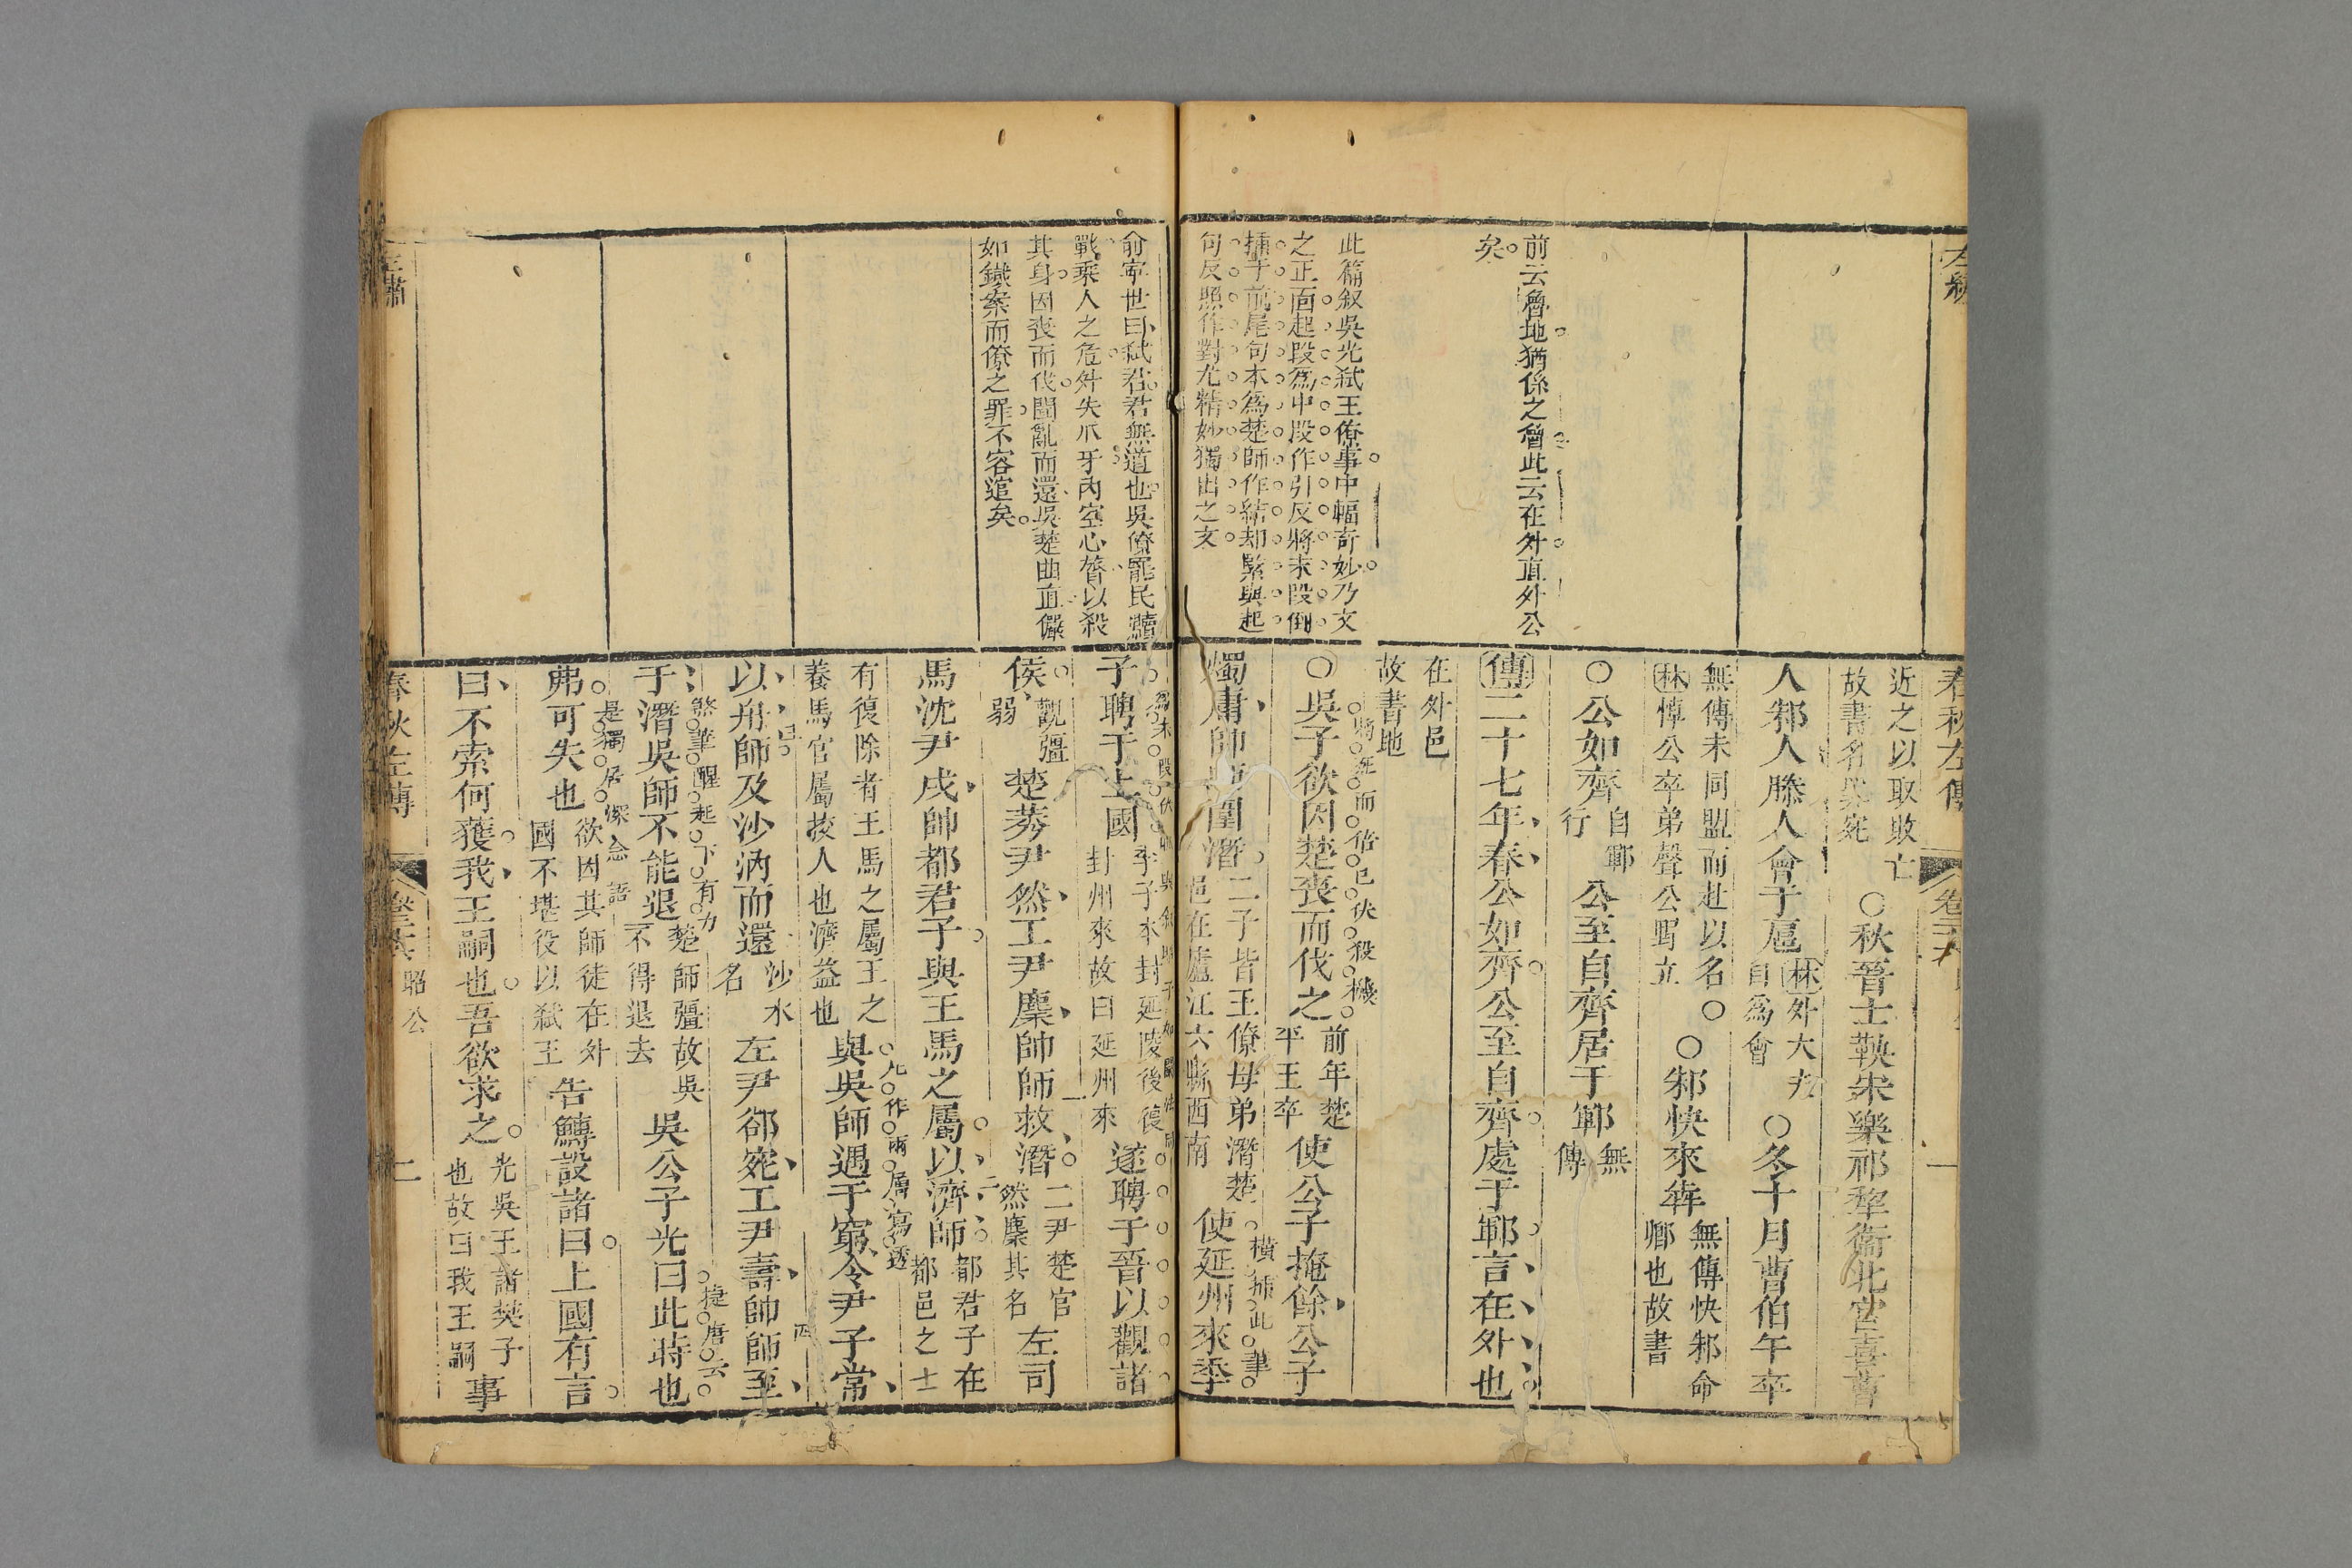 左繡
前云魯地猶係之魯此云在外直外公
矣
此篇叙吳光弑王僚事中幅奇妙乃文
之正面起段為中段作引反將末段倒
插于前尾句本為楚師作結却緊與起
句反照作對尤精妙獨出之文
春秋左傳
近之以取敗亡
故書名罪宛
○秋晉士鞅宋樂祁犂衞北宮喜曹
人邾人滕人會于扈
林外大夫
自為會
○冬十月曹伯午卒
無傳未同盟而赴以名○
林悼公卒弟聲公野立
○邾快來奔
無傳快邾命
卿也故書
○公如齊
自鄆
行
公至自齊居于鄆
無
傳
傳二十七年春公如齊公至自齊處于鄆言在外也
在外邑
故書地
○吳子欲因楚喪而伐之
前年楚
平王卒
使公子掩餘公子
燭庸帥師圍潛
二子皆王僚母弟潛楚
邑在廬江六縣西南
橫揷此筆
使延州來季
俞寧世曰弑君君無道也吳僚罷民黷
戰乘人之危外失爪牙內空心膂以殺
其身因喪而伐聞亂而還吳楚曲直儼
如鐵案而僚之罪不容逭矣
子聘于上國
季子本封延陵後復
封州來故曰延州來
遂聘于晉以觀諸
侯
觀彊
弱
楚莠尹然工尹麇帥師救潛
二尹楚官
然麇其名
左司
馬沈尹戌帥都君子與王馬之屬以濟師
都君子在
都邑之士
有復除者王馬之屬王之
養馬官屬校人也濟益也
與吳師遇于窮令尹子常
以舟師及沙汭而還
沙水
名
左尹郤宛工尹壽帥師至
于潛吳師不能退
楚師彊故吳
不得退去
吳公子光曰此時也
弗可失也
欲因其師徒在外
國不堪役以弑王
告鱄設諸曰上國有言
曰不索何獲我王嗣也吾欲求之
光吳王諸樊子
也故曰我王嗣
事
左繡
春秋左傳
昭公
二